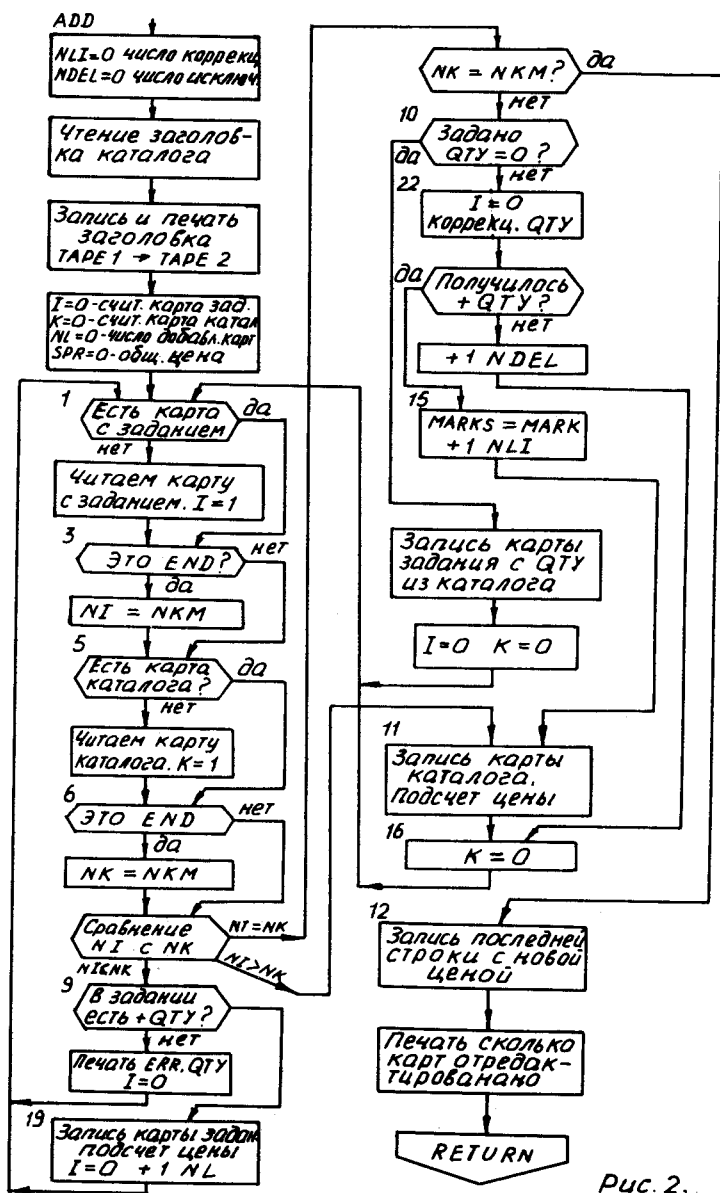 ADD
NLI=0 число коррекц
NDEL=0 число исключ
Чтение заголов-
ка каталога
Запись и печать
заголовка
TAPE 1 → TAPE 2
I=0-счит. карта зад.
K=0-счит. карта катал
NL=0-число добавл. карт
SPR=0-общ. цена
1
Есть карта
с заданием
да
нет
Читаем карту
с заданием. I=1
3
Это END?
нет
да
NI = NKM
5
Есть карта
каталога?
да
нет
Читаем карту
каталога. K=1
6
Это END
нет
да
NK = NKM
Сравнение
NI с NK
NI=NK
NI>NK
NI<NK
9
В задании
есть +QTY?
нет
Печать ERR. QTY
I=0
19
Запись карты задан
подсчет цены
I=0 +1 NL
NK = NKM?
да
нет
10
Задано
QTY=0?
да
нет
22
I=0
Коррекц. QTY
да
Получилось
+ QTY?
нет
+1 NDEL
15
MARKS = MARK
+1 NLI
Запись карты
задания с QTY
из каталога
I=0 K=0
11
Запись карты
каталога.
Подсчет цены
16
K=0
12
Запись последней
строки с новой
ценой
Печать сколько
карт отредак-
тированано
RETURN
Рис. 2.